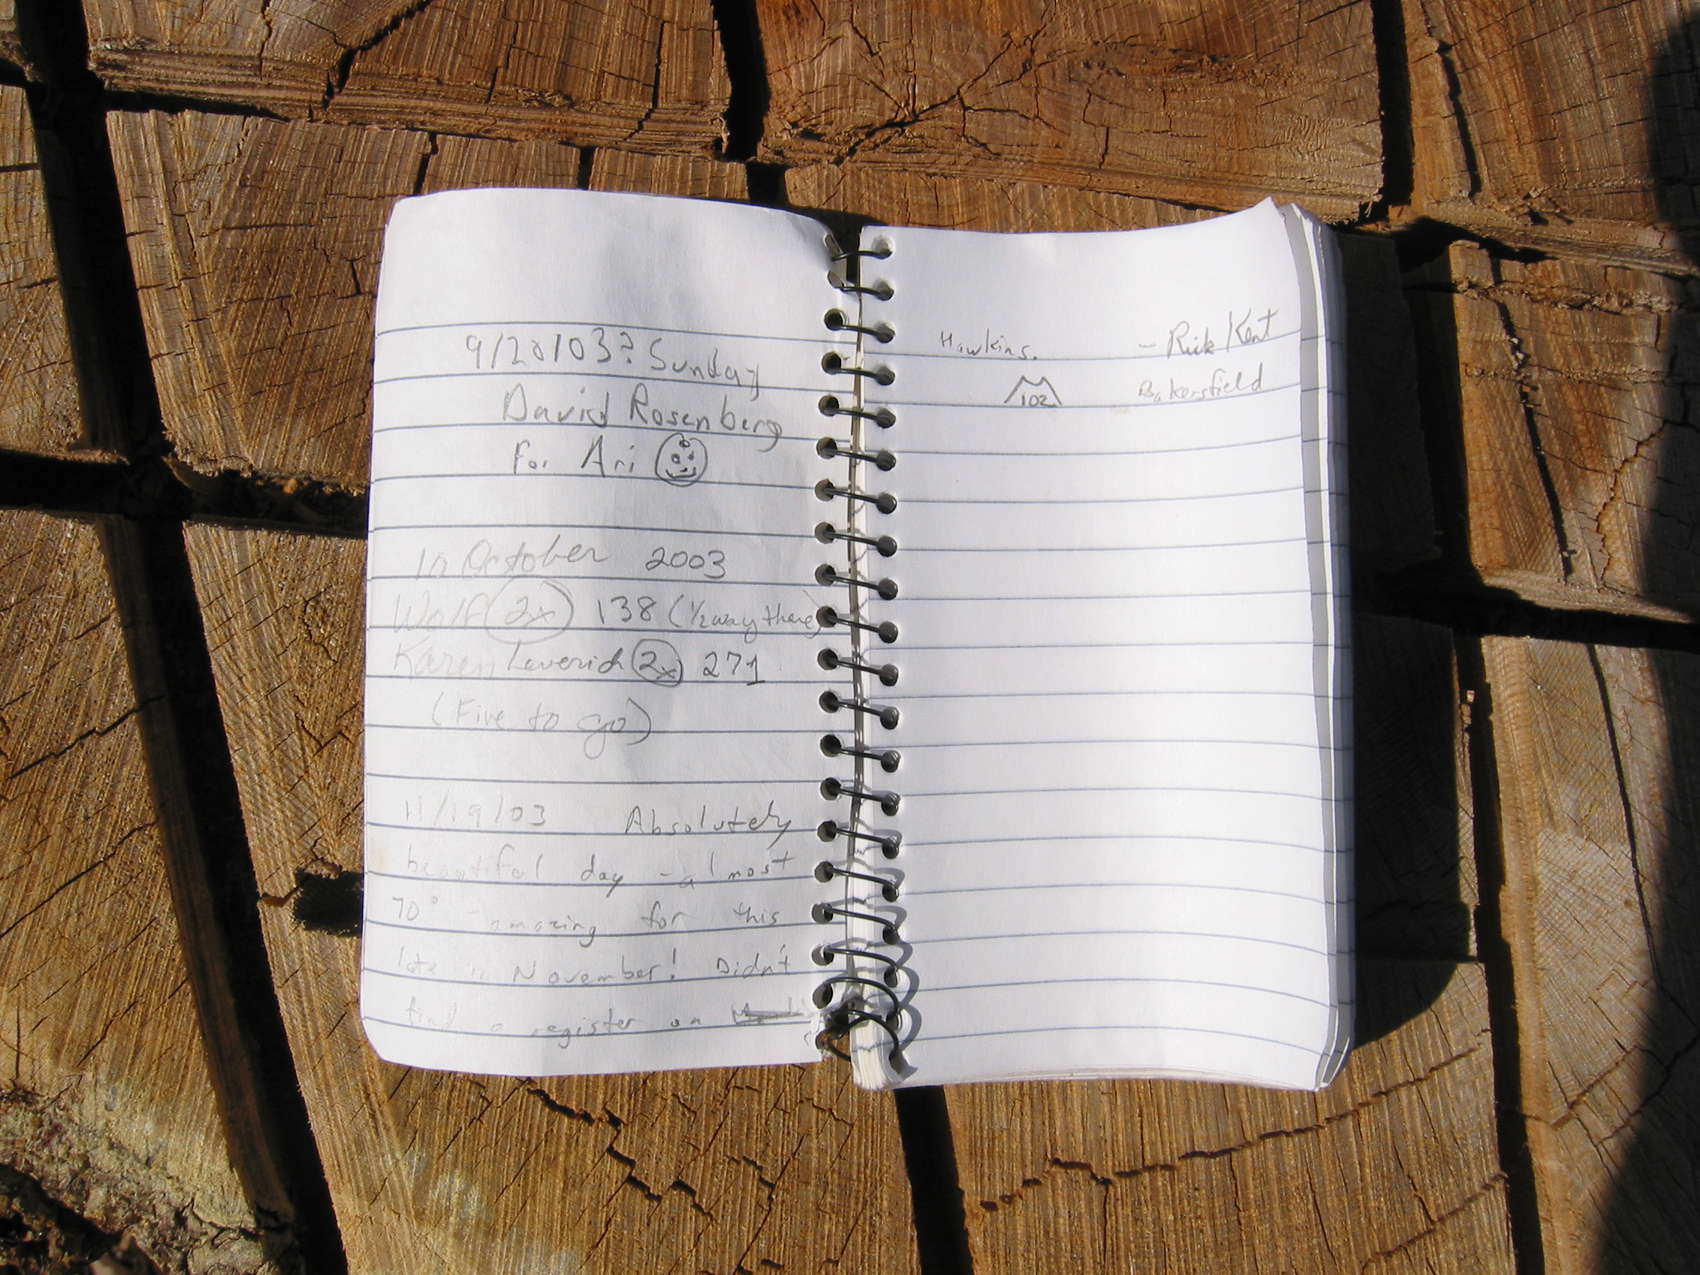 9/20/03? Sunday
David Rosenberg
For Ari
in October 2003
Wolf 2x 138 (1/2 way there)
Karen Leverich 2x 271
(Five to go)
11/19/03 Absolutely
beautiful day - almost
70° - amazing for this
late in November! Didn't
find a register on
Hawkins. - Rick Kent
102 Bakersfield